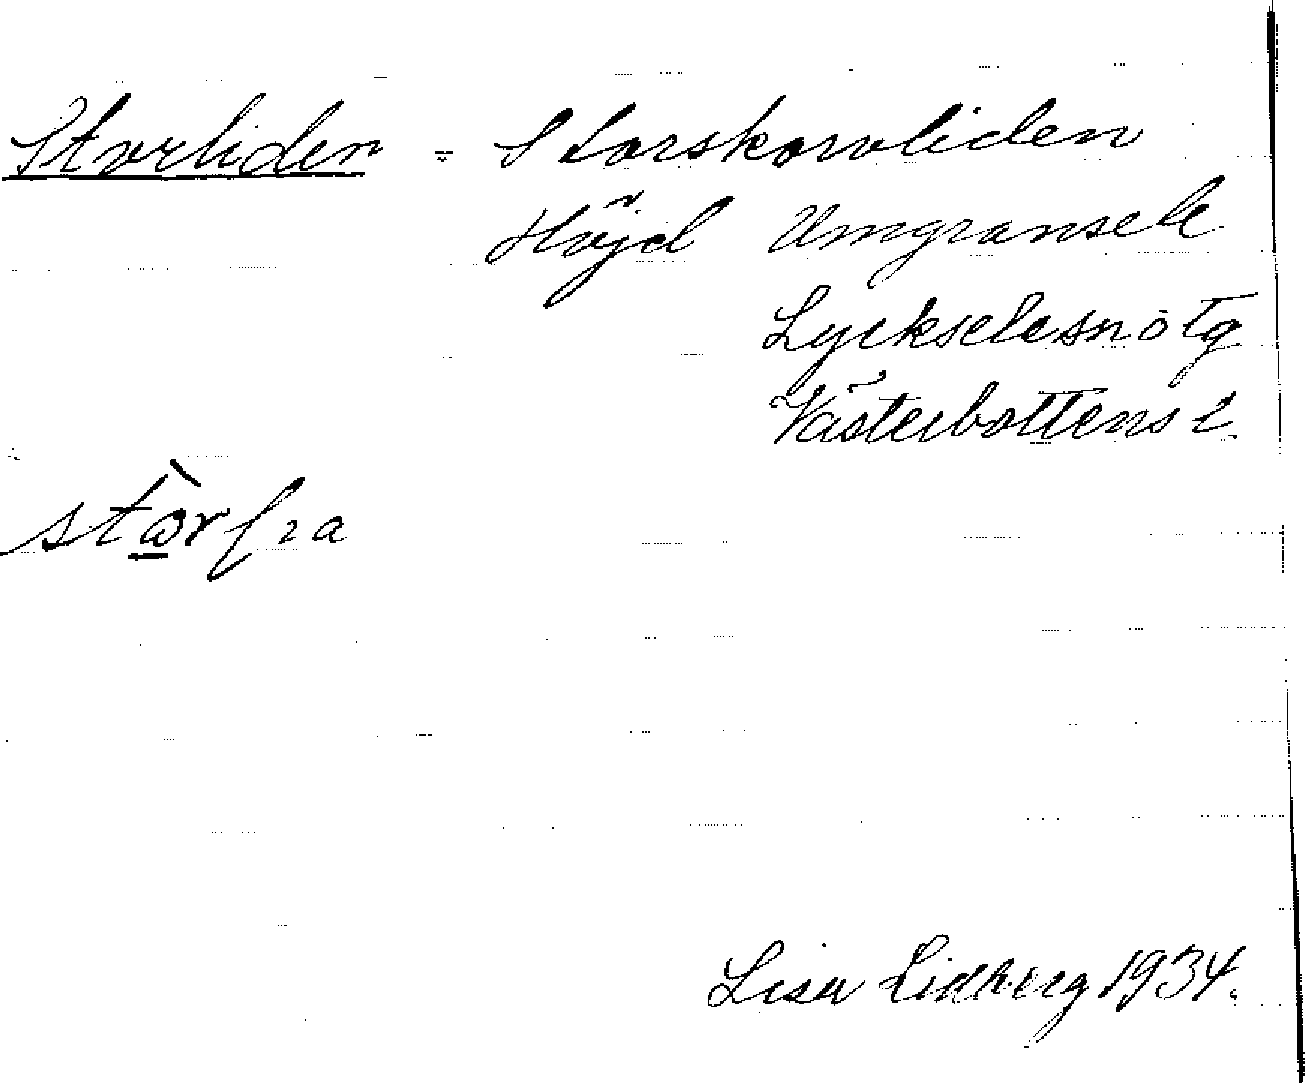 Storliden = Storskorvliden
Höjd Umgransele
Lycksele snötg
Västerbottens l.
Lisa Lidberg 1934.